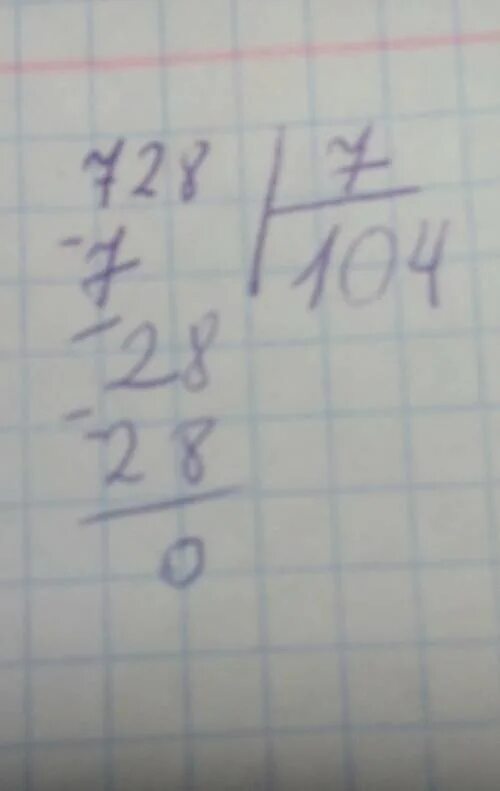 728 | 7
-7 104
-28
-28
0